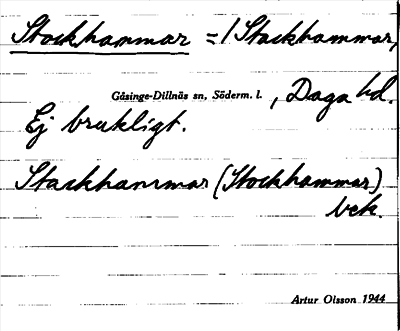 Stockhammar = / Stackhammar,
Gåsinge-Dillnäs sn, Söderm. l. , Daga hd.
Ej brukligt.
Stackhammar (Stockhammar)
bek.
Artur Olsson 1944